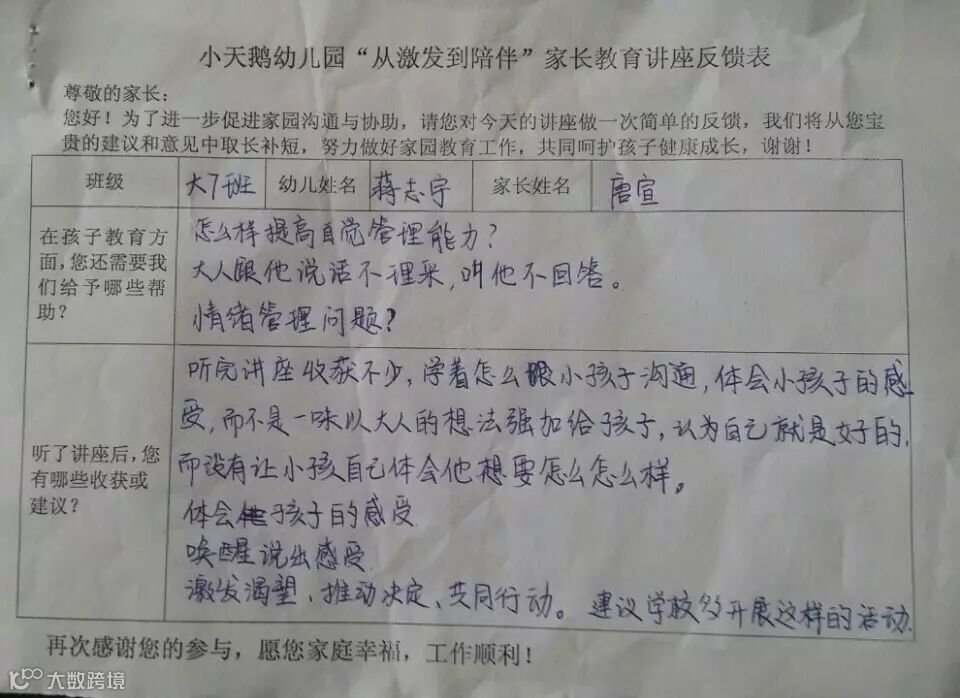 小天鹅幼儿园“从激发到陪伴”家长教育讲座反馈表
尊敬的家长：
您好！为了进一步促进家园沟通与协助，请您对今天的讲座做一次简单的反馈，我们将从您宝
贵的建议和意见中取长补短，努力做好家园教育工作，共同呵护孩子健康成长，谢谢！
班级 大7班 幼儿姓名 蒋志宇 家长姓名 唐宣
在孩子教育方
面，您还需要我
们给予哪些帮
助？
怎么样提高自觉管理能力？
大人跟他说话不理采，叫他不回答。
情绪管理问题？
听了讲座后，您
有哪些收获或
建议？
听完讲座收获不少，学着怎么跟小孩子沟通，体会小孩子的感
受，而不是一味以大人的想法强加给孩子，认为自己就是好的，
而没有让小孩自己体会他想要怎么怎么样。
体会孩子的感受
唤醒说出感受
激发渴望、推动决定、共同行动。 建议学校多开展这样的活动.
再次感谢您的参与，愿您家庭幸福，工作顺利！
大数跨境